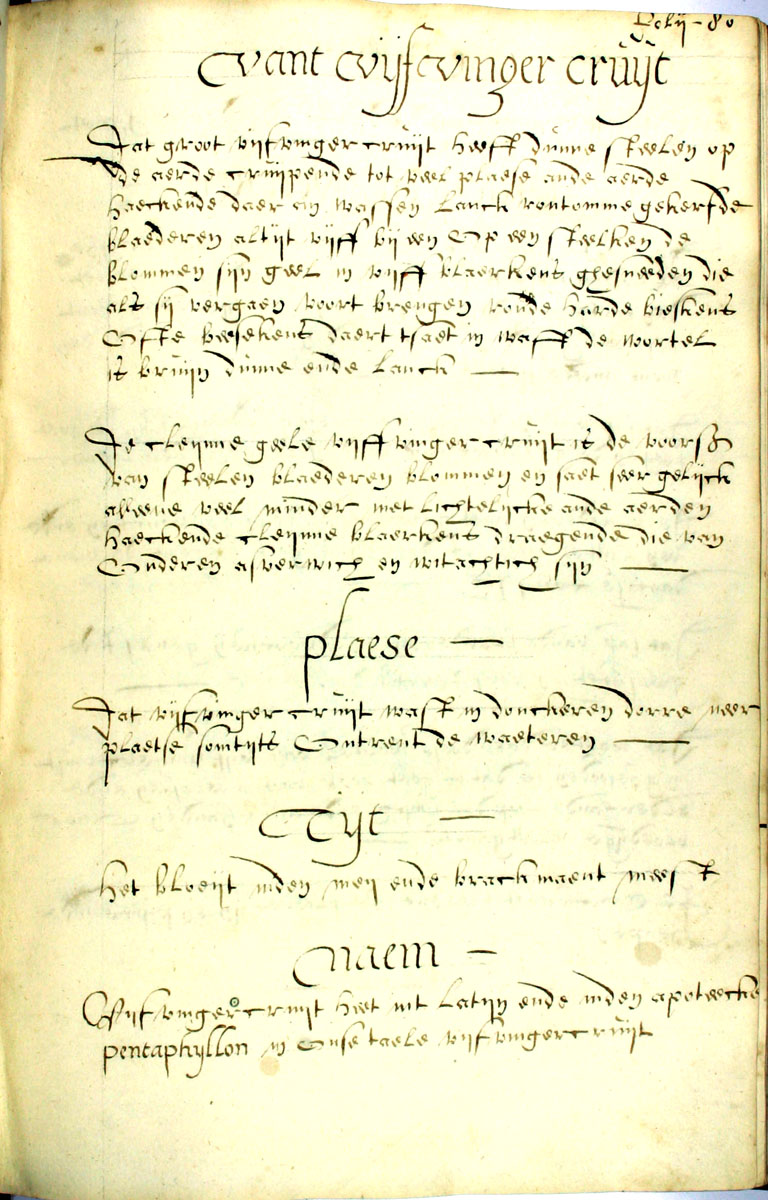 80
vant vijfvinger cruijt
Dat groot vijfvinger cruijt heeft dunne steelen op
de aerde cruijpende tot veel plaese ande aerde
haeckende daer an wassen lanck rontomme gekerfde
blaederen altijt vijff bij een Op een steelken de
blommen sijn geel in vijff blaerkens ghesneeden die
als sij vergaen voort brengen ronde harde bieskens
Ofte beesekens daert tsaet in wast de wortel
is bruijn dunne ende lanck —
De cleijnne geele vijffvinger cruijt is de voors
van steelen blaederen blommen en saet seer gelijck
alleene veel minder met lichtelijcke ande aerden
haeckende cleijnne blaerkens draegende die van
Onderen asverwich en witachtich sijn —
plaese —
Dat vijfvinger cruijt wast in donckeren dorre neer
plaetse somtijts Ontrent de waeteren —
Tijt —
het bloeijt inden meij ende brackmaent meest
naem —
Vijfvinger cruijt heet int Latijn ende inden apoteecke
pentaphyllon in Onse taele vijfvinger cruijt